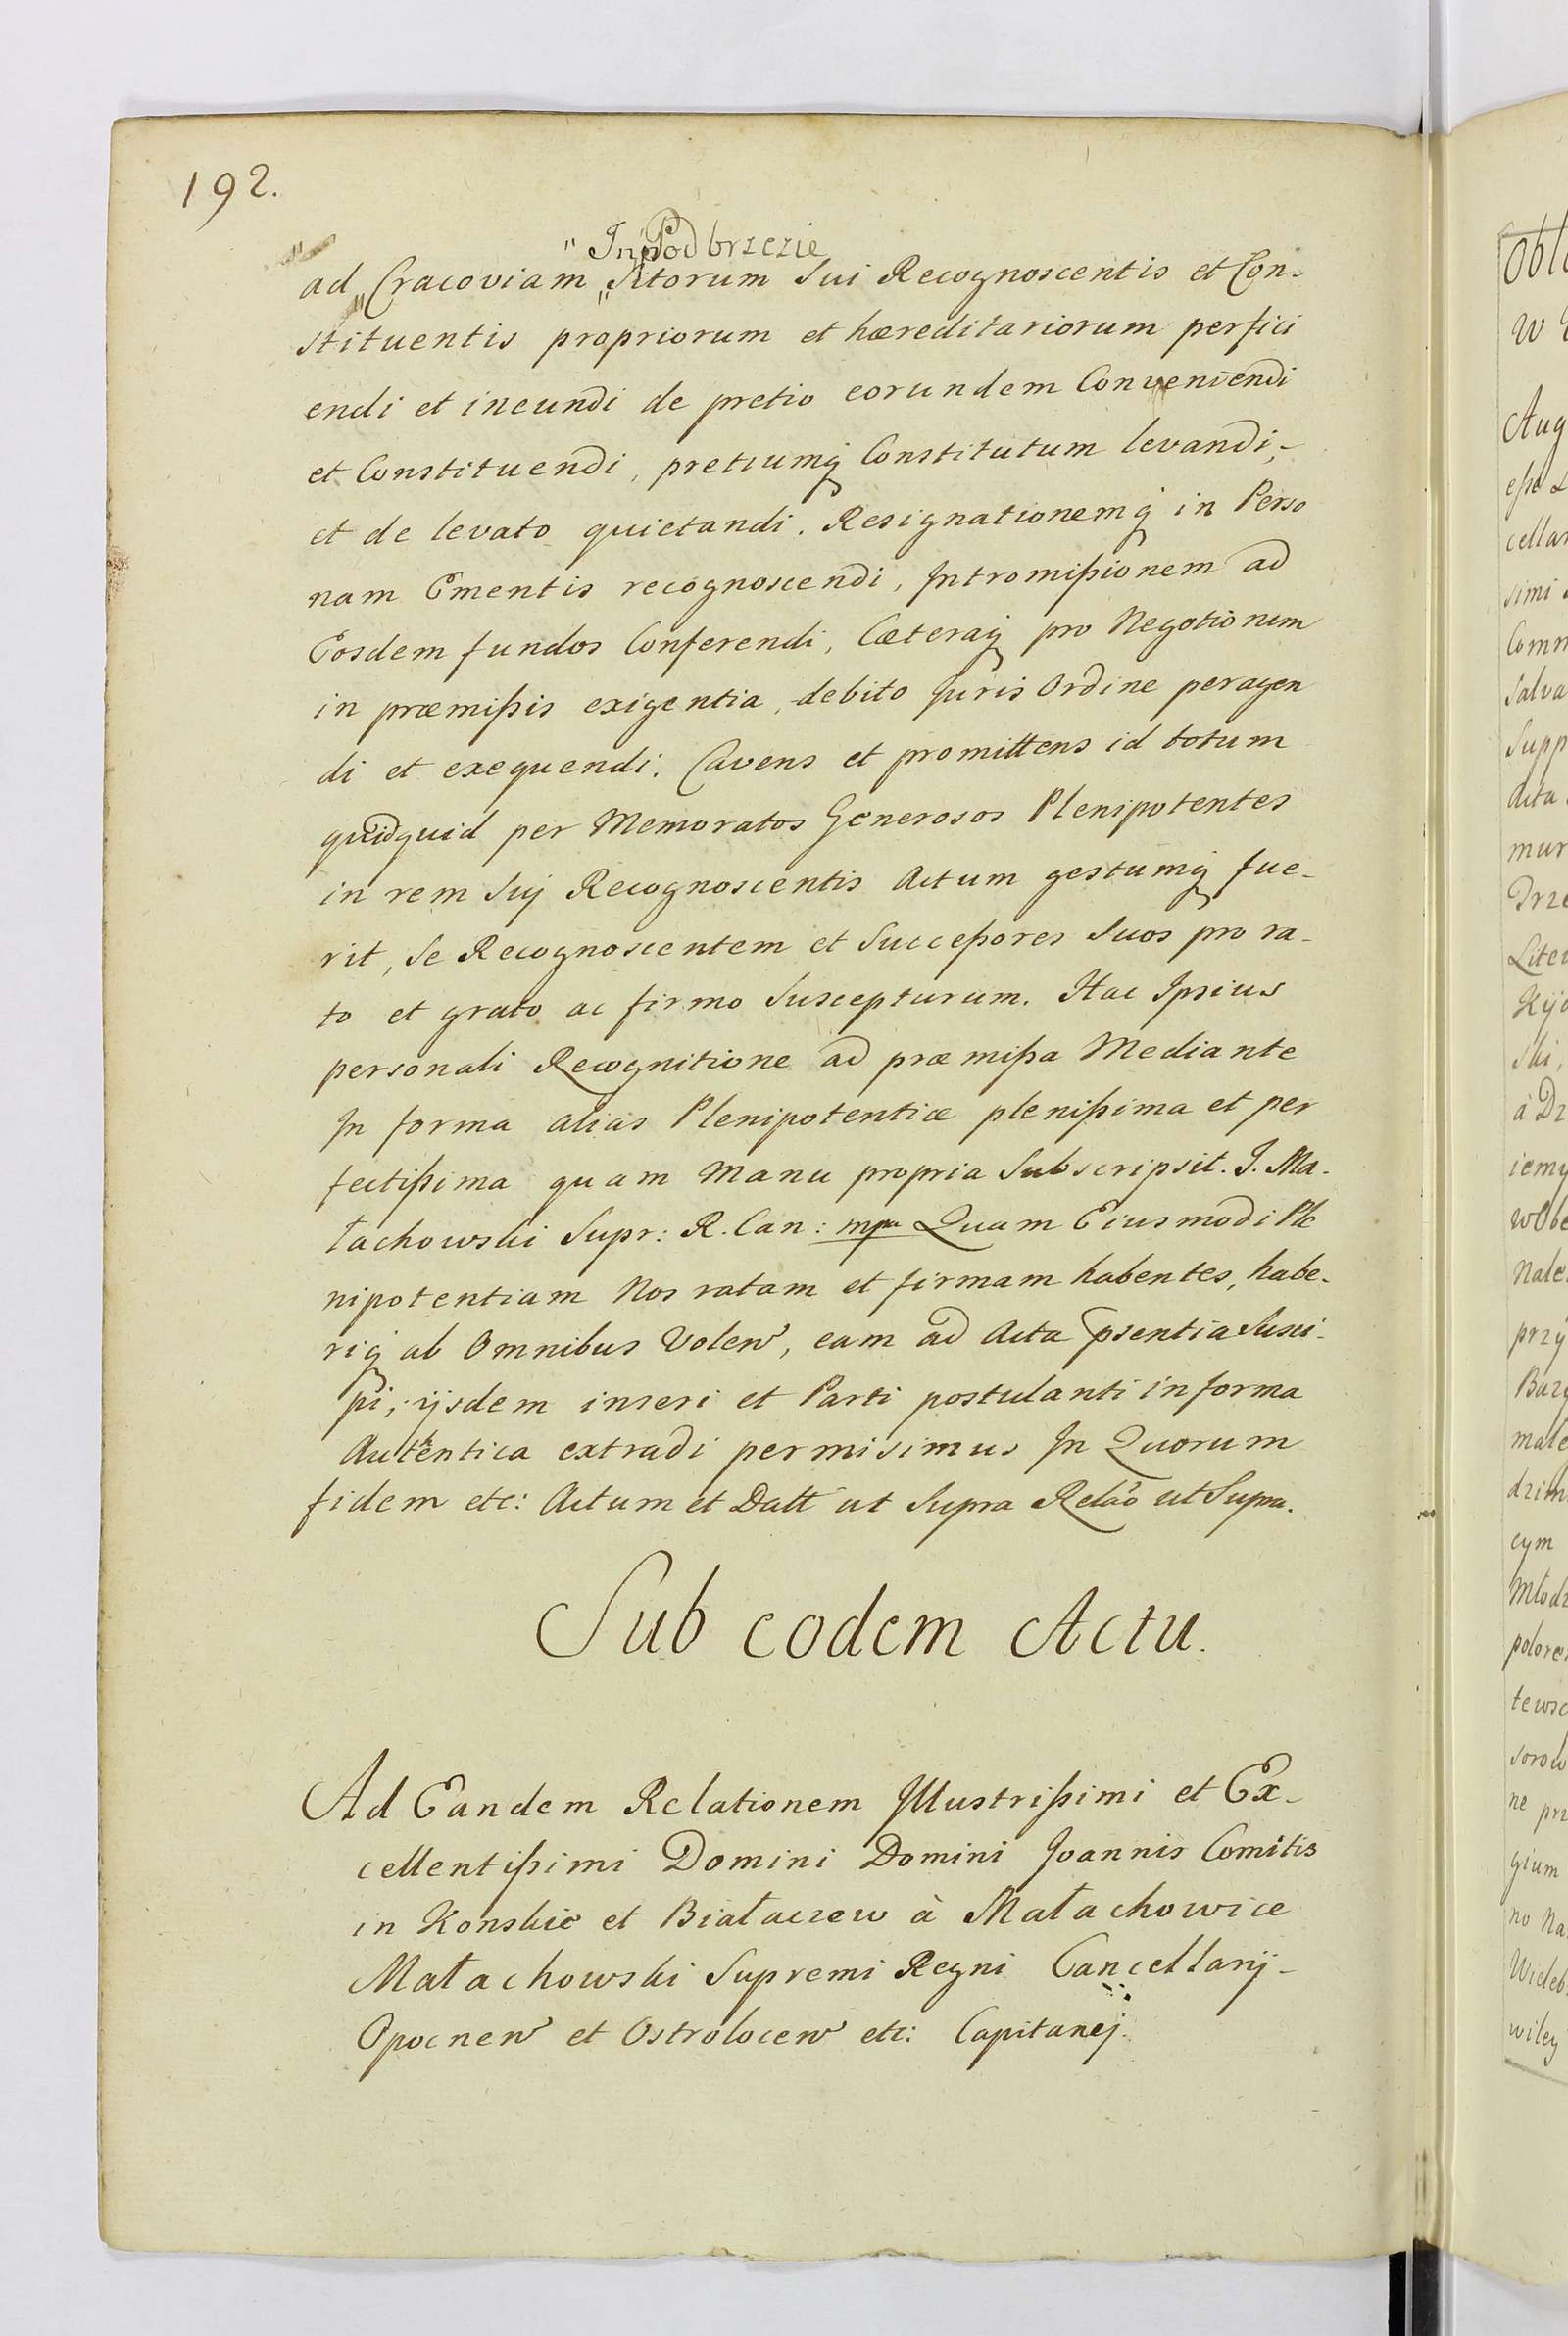 192.
" In Podbrzezie
ad Cracoviam " Sitorum Sui Recognoscentis et Con-
stituentis propriorum et hæreditariorum perfici
endi et ineundi de pretio eorundem Conveniendi
et Constituendi, pretiumq Constitutum levandi,-
et de levato quietandi. Resignationemq in Perso
nam Ementis recognoscendi, Intromißionem ad
Eosdem fundos Conferendi, Cæteraq pro Negotiorum
in præmißis exigentia, debito Juris Ordine peragen
di et exequendi. Cavens et promittens id totum
quidquid per Memoratos Generosos Plenipotentes
in rem Sui Recognoscentis Actum gestumq fue-
rit, Se Recognoscentem et Succeßores Suos pro ra-
to et grato ac firmo Suscepturum. Hac Ipsius
personali Recognitione ad præmißa Mediante
In forma alias Plenipotentiæ plenißima et per
fectißima quam Manu propria Subscripsit. J. Ma-
łachowski Supr: R. Can: mpa Quam Eiusmodi Ple
nipotentiam Nos ratam et firmam habentes, habe-
riq ab Omnibus Volen, eam ad Acta psentia Susci-
pi, ijsdem inseri et Parti postulanti in forma
Autentica extradi permisimus In Quorum
fidem etc: Actum et Datt ut Supra Relao ut Supra.
Sub eodem Actu.
Ad Eandem Relationem Illustrißimi et Ex-
cellentißimi Domini Domini Joannis Comitis
in Konskie et Białaczew à Małachowice
Małachowski Supremi Regni Cancellarij-
Opocnen et Ostrolocen etc: Capitanej.
Obl
W
Aug
eße
cellar
simi
Comm
Salva
Supp
Acta
mur
Drze
Liter
Kijo
ski,
à Dz
iemy
wObe
Nale
przy
Barz
male
dzim
cym
Młodz
polore
tewsc
sorow
ne prz
gium
no Na
Wideb
wiley